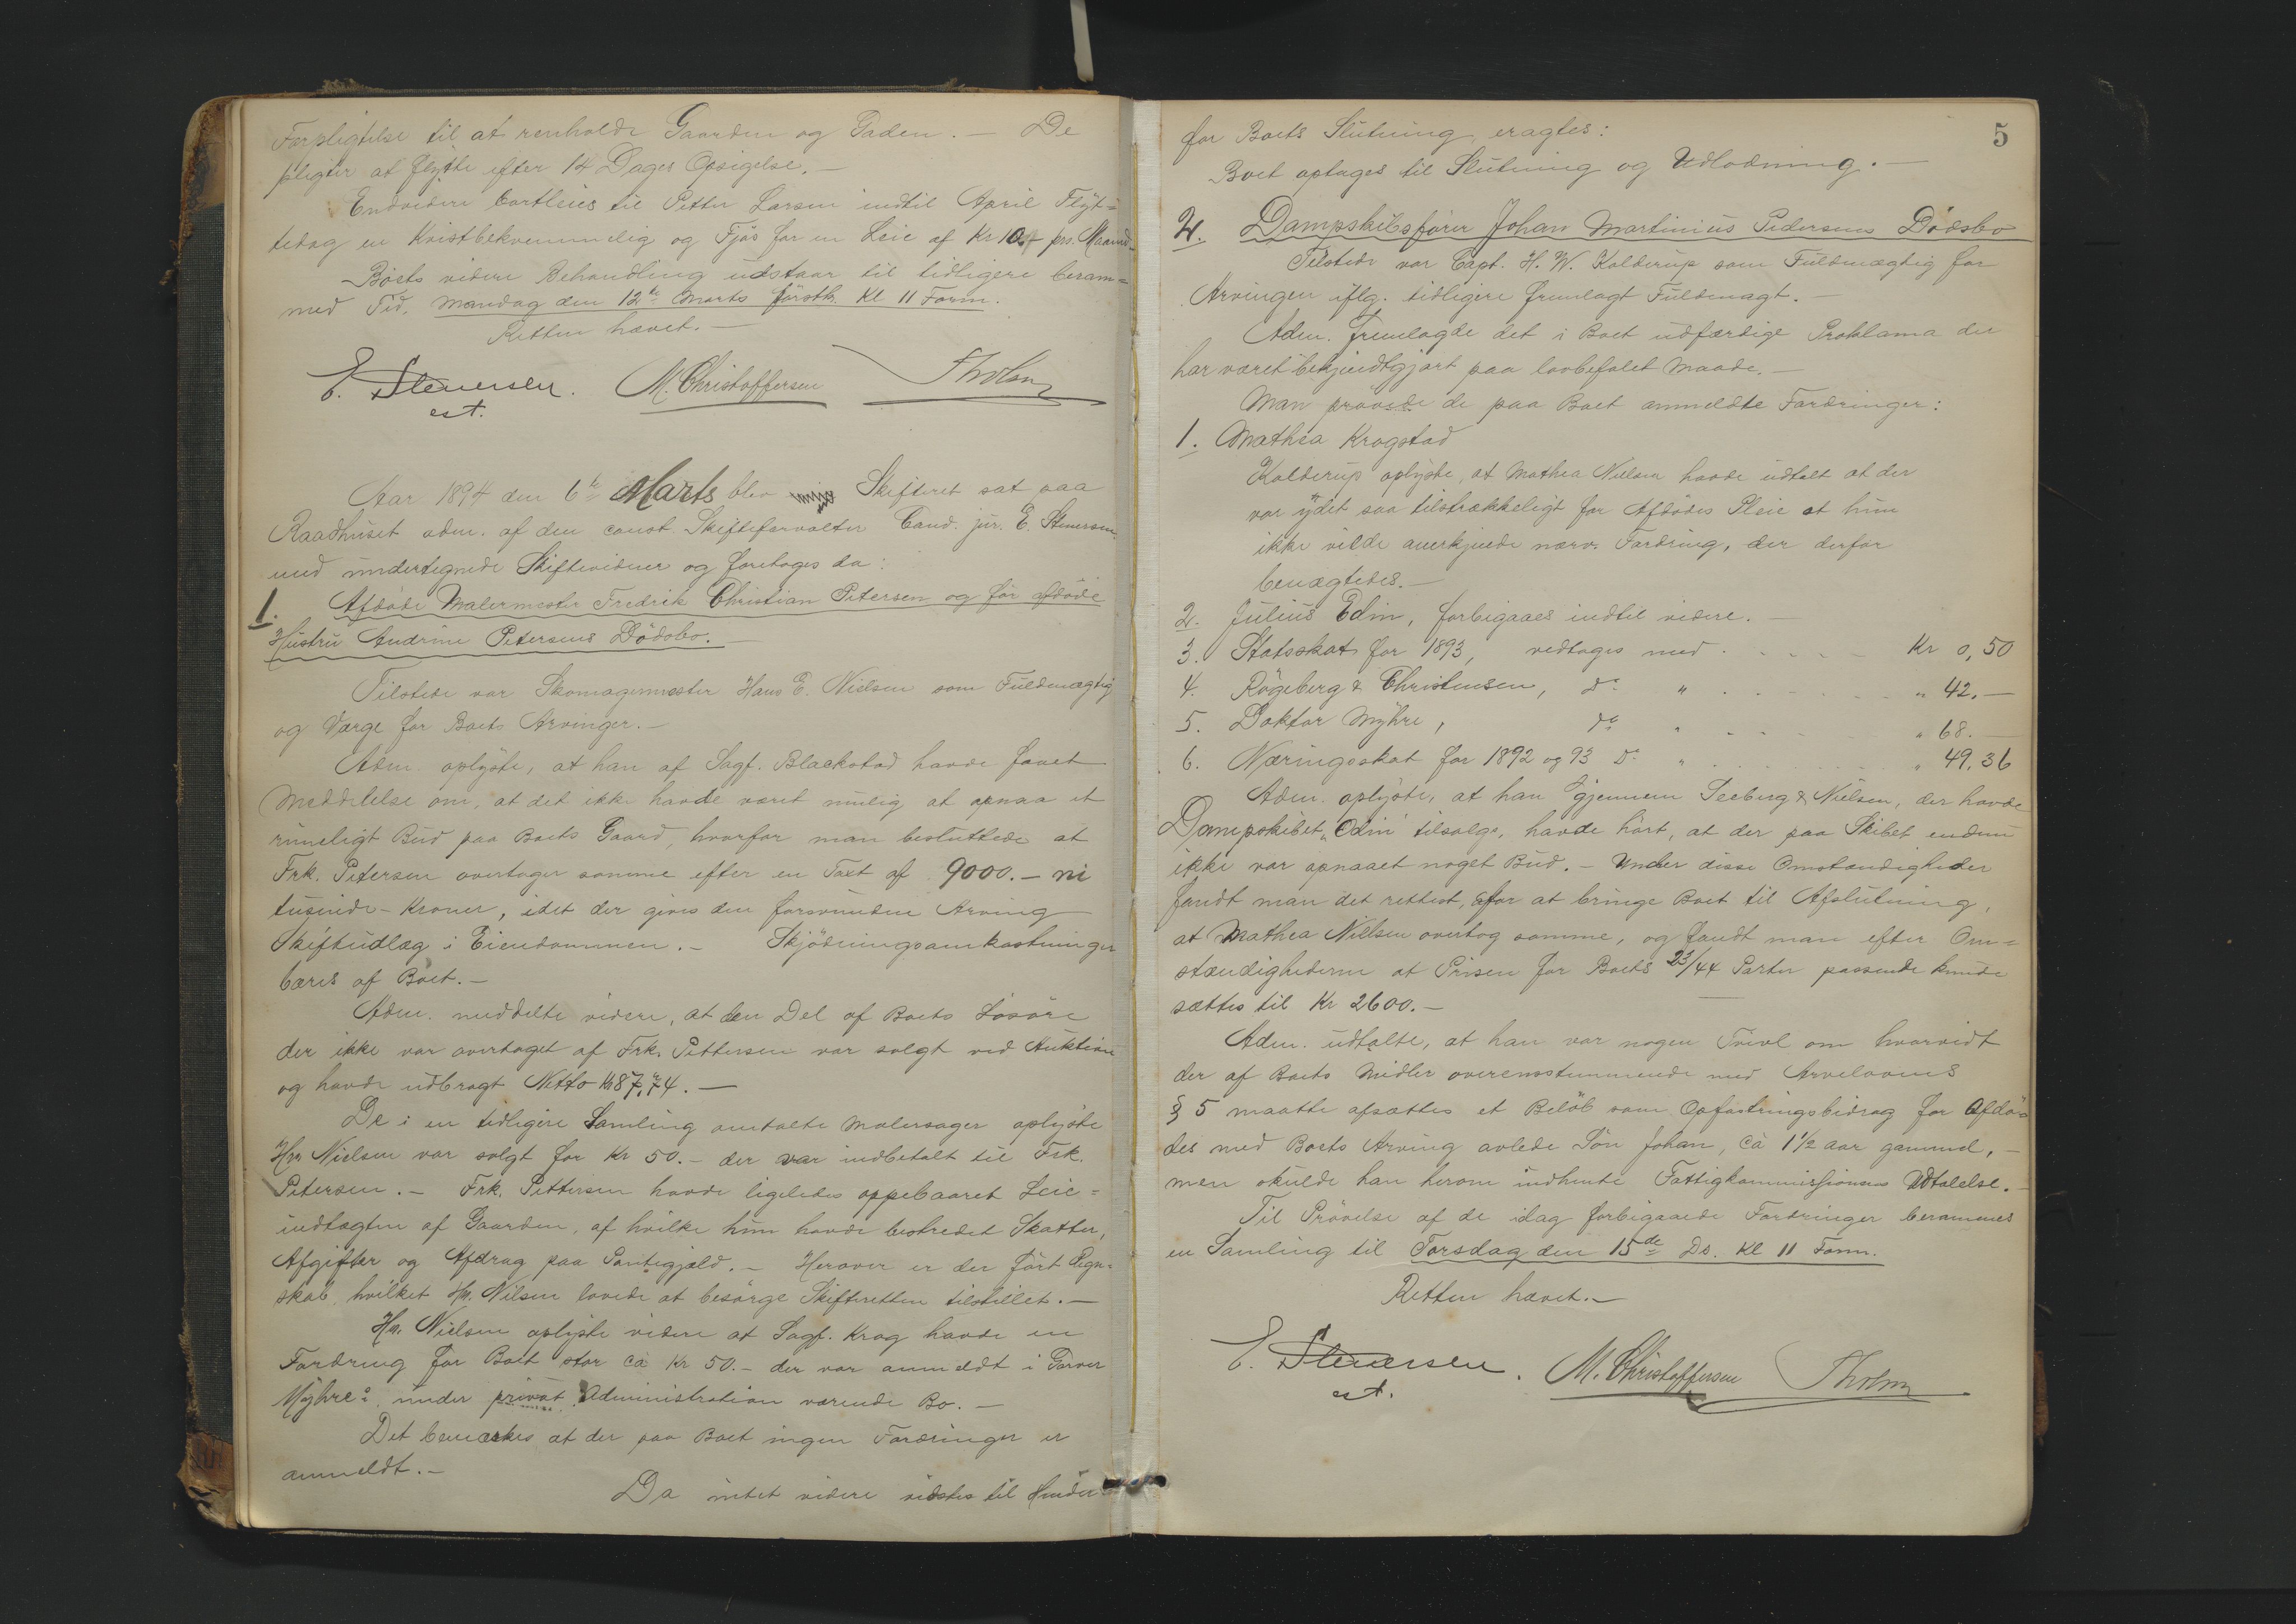 Forpligtelse til at renholde Gaarden og Gaden. — De
pligter at flytte efter 14 Dages Opsigelse. —
Endvidere bortleies til Petter Larsen indtil April Flyt=
tedag en Kvistbekvemmelig og Fjøs for en Leie af Kr 10,- prs. Maaned
Boets videre Behandling udstaar til tidligere beram=
med Tid, Mandag den 12te Marts førstk. Kl 11 Form.
Retten hævet. —
E. Stenersen. M. Christoffersen Tholm
cst.
Aar 1894 den 6te Marts blev Skifteret sat paa
Raadhuset adm. af den const. Skifteforvalter Cand. jur. E. Stenersen
med undertegnede Skiftevidner og foretoges da:
1. Afdøde Malermester Fredrik Christian Petersen og før afdøde
Hustru Andrine Petersens Dødsbo. —
Tilstede var Skomagermester Hans E. Nielsen som Fuldmægtig
og Værge for Boets Arvinger. —
Adm. oplyste, at han af Sagf. Blackstad havde faaet
Meddelelse om, at det ikke havde været mulig at opnaa et
rimeligt Bud paa Boets Gaard, hvorfor man besluttede at
Frk. Petersen overtager samme efter en Taxt af 9000. — ni
tusinde — Kroner, idet der gives den forsvundne Arving
Skifteudlæg i Eiendommen. — Skjødningsomkostninger
bæres af Boet. —
Adm. meddelte videre, at den Del af Boets Løsøre
der ikke var overtaget af Frk. Pettersen var solgt ved Auktion
og havde udbragt Netto Kr 87,74. —
De i en tidligere Samling omtalte Malersager oplyste
Hr. Nielsen var solgt for Kr 50. — der var indbetalt til Frk.
Petersen. — Frk. Pettersen havde ligeledes oppebaaret Leie=
indtægten af Gaarden, af hvilke hun havde bestredet Skatter,
Afgifter og Afdrag paa Pantegjæld. — Herover er der ført Regn=
skab, hvilket Hr. Nilsen lovede at besørge Skifteretten tilstillet. —
Hr. Nielsen oplyste videre at Sagf. Krag havde en
Fordring for Boet stor ca Kr 50. — der var anmeldt i Garver
Myhres under privat Administration værende Bo. —
Det bemærkes at der paa Boet ingen Fordringer er
anmeldt. —
Da intet videre vidstes til Hinder
5
for Boets Slutning eragtes:
Boet optages til Slutning og Udlodning. —
2. Dampskibsfører Johan Martinius Pedersens Dødsbo
Tilstede var Capt. H. W. Kolderup som Fuldmægtig for
Arvingen iflg. tidligere fremlagt Fuldmagt. —
Adm. fremlagde det i Boet udfærdige Proklama der
har været bekjendtgjort paa lovbefalet Maade. —
Man prøvede de paa Boet anmeldte Fordringer:
1. Mathea Krogstad
Kolderup oplyste, at Mathea Nielsen havde udtalt at der
var ydet saa tilstrækkeligt for Afdødes Pleie at hun
ikke vilde anerkjende nærv. Fordring, der derfor
benægtedes. —
2. Julius Edin, forbigaaes indtil videre. —
3. Statsskat for 1893, vedtages med . . . . Kr 0,50
4. Røgeberg & Christensen, do " . . . . " 42. —
5. Doktor Myhre, do " . . . . " 68. —
6. Næringsskat for 1892 og 93 do " . . . . " 49,36
Adm. oplyste, at han gjennem Seeberg & Nielsen, der havde
Dampskibet "Odin" tilsalgs, havde hørt, at der paa Skibet endnu
ikke var opnaaet noget Bud. — Under disse Omstændigheder
fandt man det rettest, for at bringe Boet til Afslutning,
at Mathea Nielsen overtog samme, og fandt man efter Om=
stændighederne at Prisen for Boets 23/44 Parter passende kunde
sættes til Kr 2600. —
Adm. udtalte, at han var nogen Tvivl om hvorvidt
der af Boets Midler overensstemmende med Arvelovens
§ 5 maatte afsættes et Beløb som Opfostringsbidrag for Afdø=
des med Boets Arving avlede Søn Johan, ca 1½ aar gammel, —
men skulde han herom indhente Fattigkommissionens Udtalelse. —
Til Prøvelse af de idag forbigaaede Fordringer berammes
en Samling til Torsdag den 15de Ds. Kl 11 Form.
Retten hævet. —
E. Stenersen. M. Christoffersen Tholm
cst.